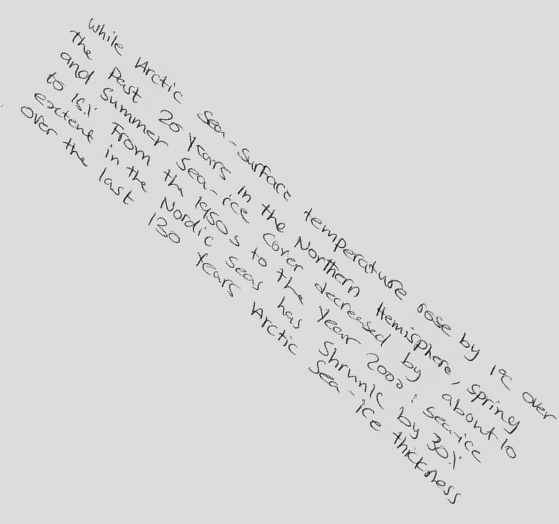 while Arctic sea-surface temperature rose by 1°C over
the past 20 years in the Northern Hemisphere, spring
and summer sea-ice cover decreased by about 10
to 15% From the 1950s to the year 2000; sea-ice
extent in the Nordic seas has shrunk by 30%
over the last 130 years Arctic sea-ice thickness